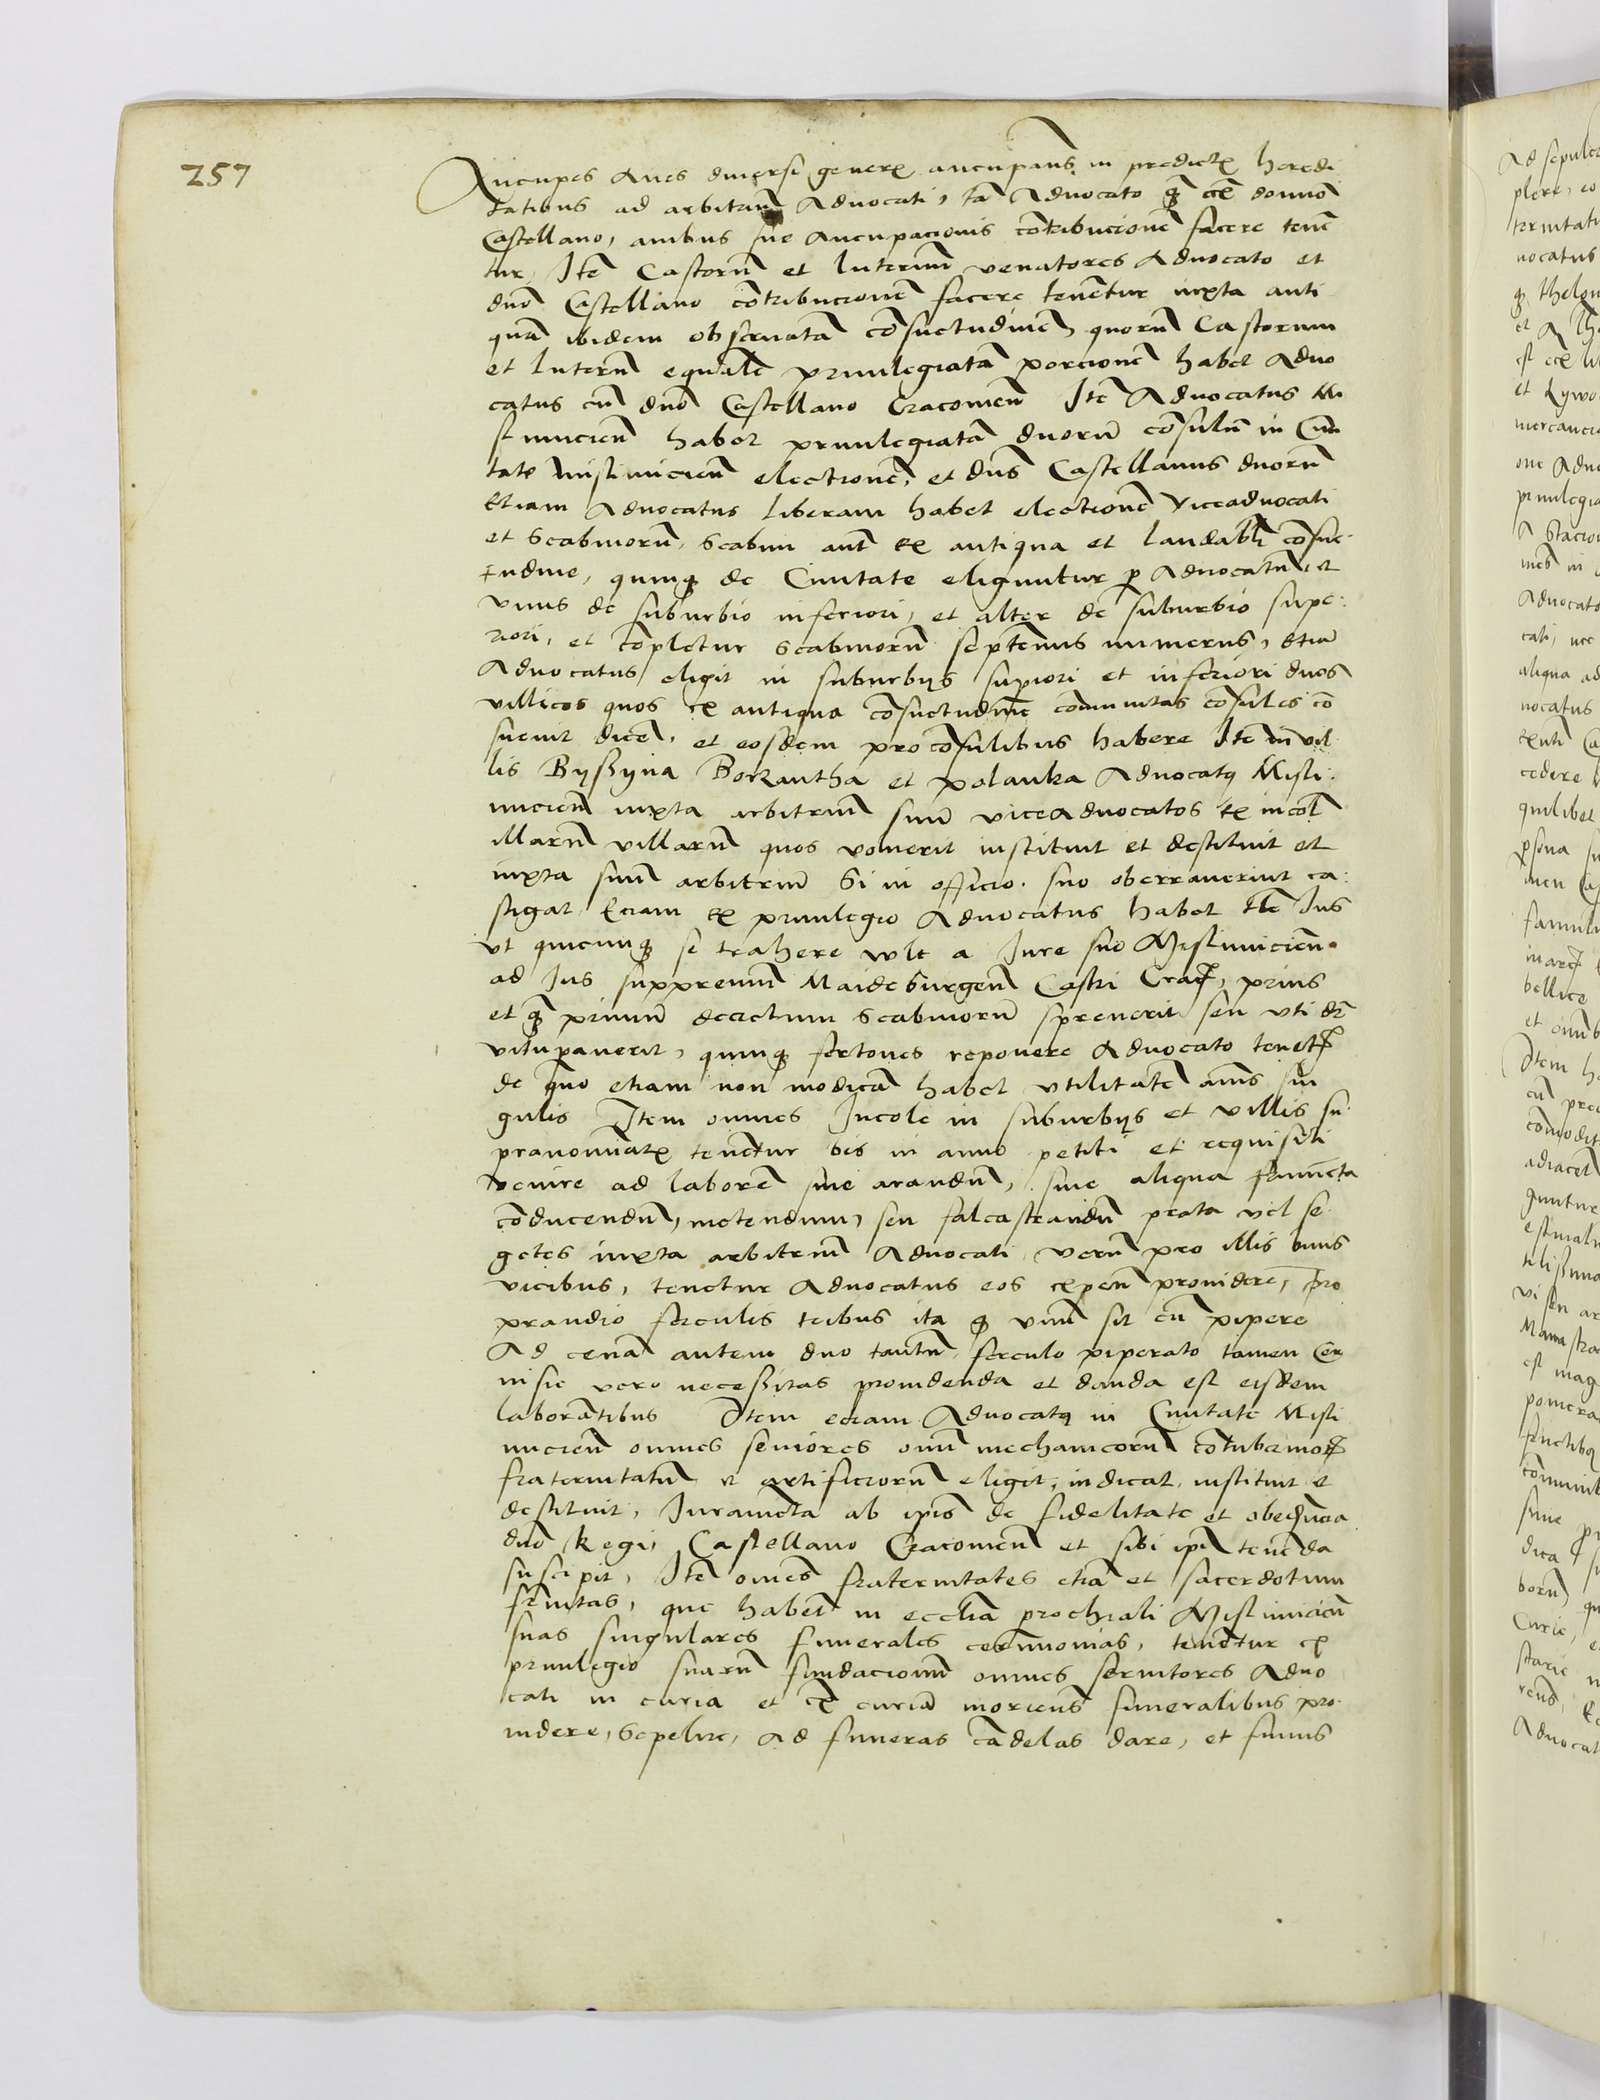 257
Aucupes Aues diuersi generis aucupantes in predictis heredi
tatibus ad arbitrium Aduocati, tam Aduocato quam etiam domino
Castellano, auibus sue Aucupacionis contribucionem facere tenen
tur, Item Castorum et luterum venatores Aduocato et
dno Castellano contribucionem facere tenentur iuxta anti
quam ibidem obseruatam consuetudinem, quorum Castorum
et luterum equalem priuilegiatam porcionem habet Aduo
catus cum dno Castellano Cracouien Item Aduocatus Mi
slimicien habet priuilegiatam duorum consulum in Ciui
tate Mislimicien electionem, et dns Castellanus duorum
Etiam Aduocatus liberam habet electionem viceaduocati
et Scabinorum, Scabini autem ex antiqua et laudabili consue
tudine, quinque de Ciuitate eliguntur per Aduocatum, et
vnus de suburbio inferiori, et alter de suburbio supe
riori, et completur scabinorum septenus numerus, Etiam
Aduocatus eligit in suburbijs superiori et inferiori duos
villicos quos ex antiqua consuetudine communitas consules con
sueuit dicere, et eosdem pro consulibus habere Item in vil
lis Byssyna Borzantha et polanka Aduocatus Misli
micien iuxta arbitrium suum viceaduocatos ex incolis
illarum villarum quos voluerit instituit et destituit et
iuxta suum arbitrium si in officio suo oberrauerint ca
stigat Eciam ex priuilegio Aduocatus habet tale Jus
vt quicunque se trahere vult a Jure suo Mislimicien
ad Jus suppremum Maideburgen Castri Crac, prius
et quam primum decretum scabinorum spreuerit seu vti dr
vituperauerit, quinque fertones reponere Aduocato tenetur
de quo etiam non modicam habet vtilitatem annis sin
gulis Item omnes Incole in suburbijs et villis su
pranominatis tenentur bis in anno petiti et requisiti
venire ad laborem siue arandum, siue aliqua frumenta
conducendum, metendum, seu falcastrandum prata vel se
getes iuxta arbitrium Aduocati verum pro illis binis
vicibus, tenetur Aduocatus eos expen prouidere, pro
prandio ferculis tribus ita quod vnum sit cum pipere
Ad cenam autem duo tantum, ferculo piperato tamen Cer
uisie vero necessitas prouidenda et danda est eisdem
laborantibus Item eciam Aduocatus in Ciuitate Misli
micien omnes seniores omnium mechanicorum contuberniorum
fraternitatum et artificiorum eligit, iudicat, instituit et
destituit, Juramenta ab ipsis de fidelitate et obediencia
dno Regi, Castellano Cracouien et sibi ipsi tenenda
suscipit, Item omnes fraternitates etiam et sacerdotum
frnitas, que habent in ecclesia parochiali Mislimicien
suas singulares funerales cerimonias, tenentur ex
priuilegio suarum fundacionum omnes seruitores Aduo
cati in curia et ex curia morientes funeralibus pro
uidere, Sepelire, ad funeras candelas dare, et funus